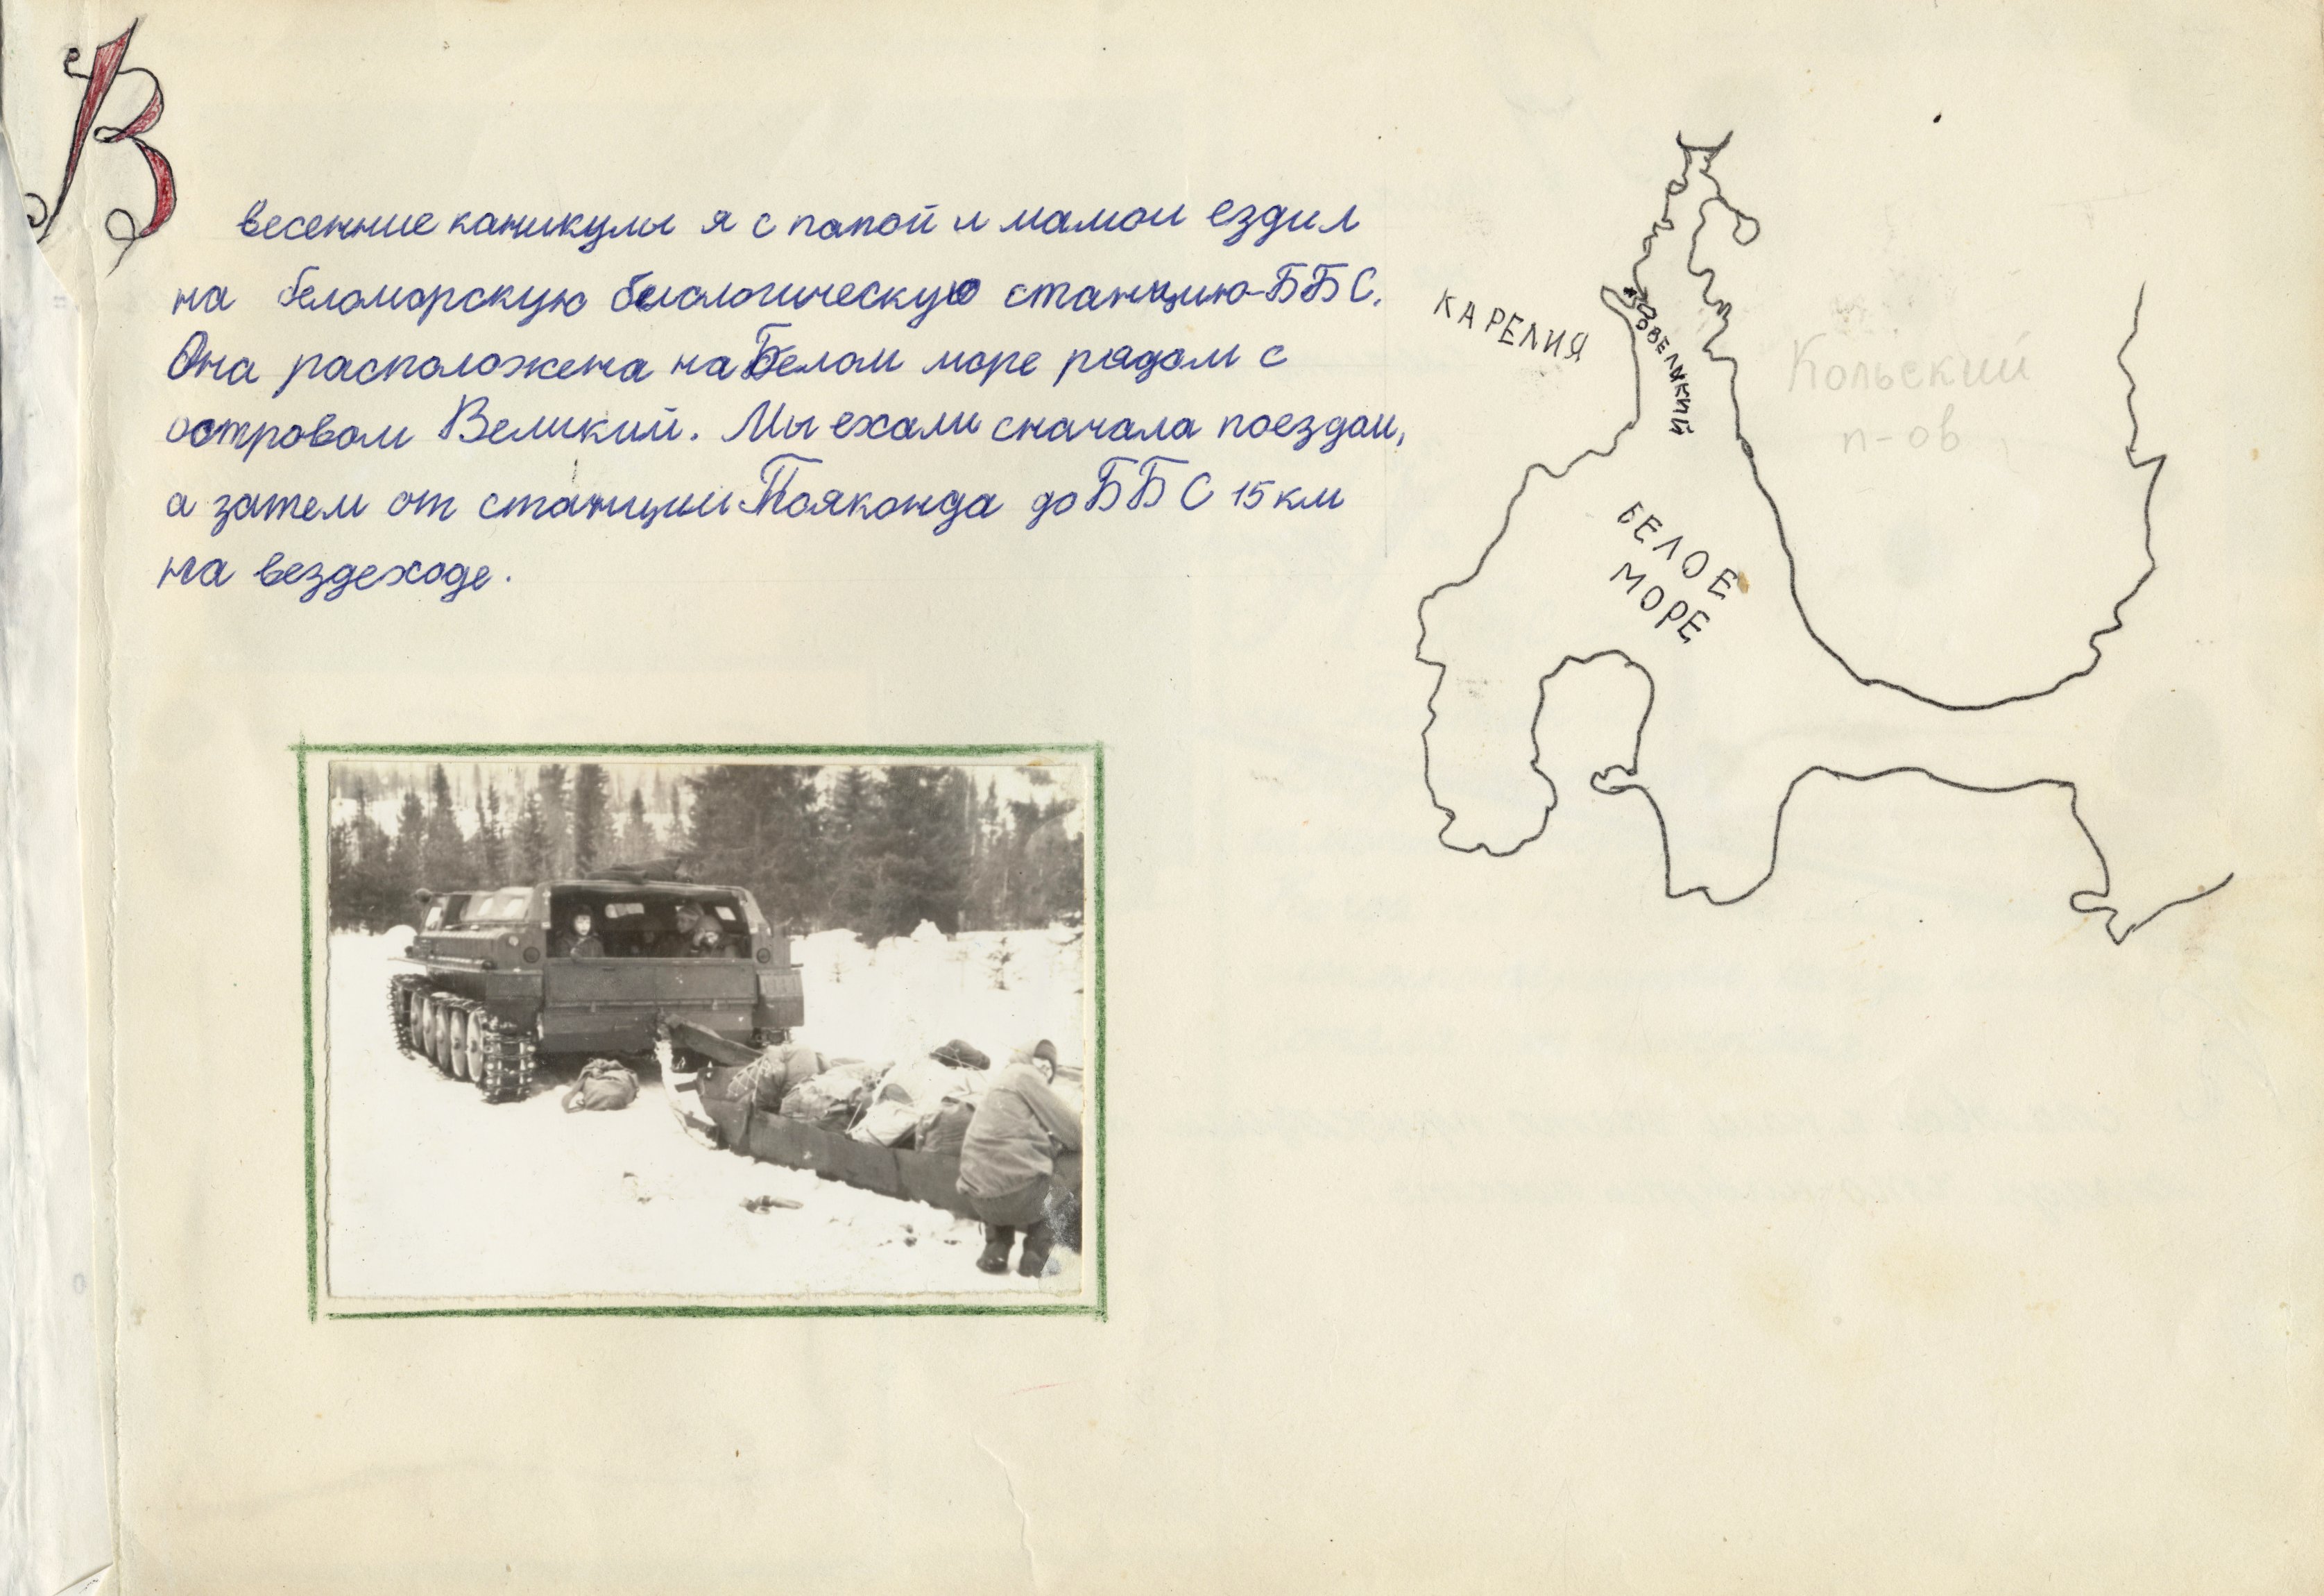 В
весенние каникулы я с папой и мамои ездил
на беломорскую биологическую станцию-ББС.
Она расположена на Белом море рядом с
островом Великий. Мы ехали сначала поездом,
а затем от станции Пояконда до ББС 15 км
на вездеходе.
КАРЕЛИЯ
О ВЕЛИКИЙ
Кольский
п-ов
БЕЛОЕ
МОРЕ